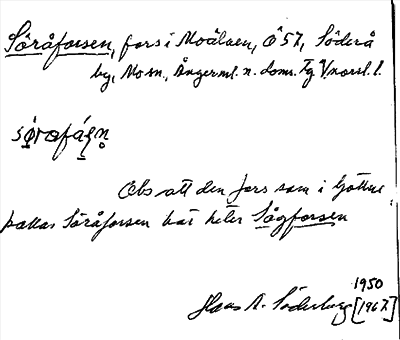 Söråforsen, fors i Moälven, Ö 57, Söderå
by, Mo sn., Ångerml. n. doms. Tg V.norrl. l.
sǿrafáṣṇ
Obs att den fors som i Gottne
kallas Söråforsen här heter Sågforsen
1950
Hans A. Söderberg [1967.]